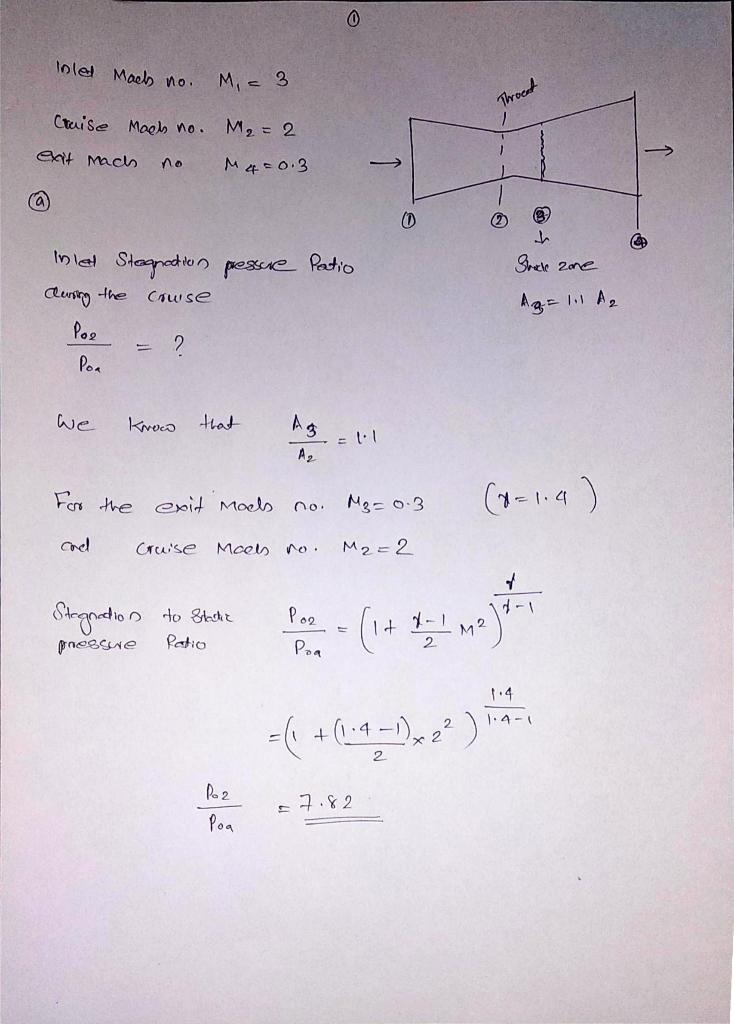 ①
Inlet Mach no. M₁ = 3
Cruise Mach no. M₂ = 2
exit Mach no M4 = 0.3
Throat
① ② ③ ④
Shock zone
A₃ = 1.1 A₂
ⓐ
Inlet Stagnation pressure Ratio
during the cruise
Po2 / Poa = ?
We know that A3 / A2 = 1.1
For the exit Mach no. M3 = 0.3 (γ = 1.4)
and cruise Mach no. M2 = 2
Stagnation to Static pressure Ratio Po2 / Poa = (1 + γ-1 / 2 M²)^(γ / γ-1)
= (1 + (1.4-1) / 2 × 2²)^(1.4 / 1.4-1)
Po2 / Poa = 7.82